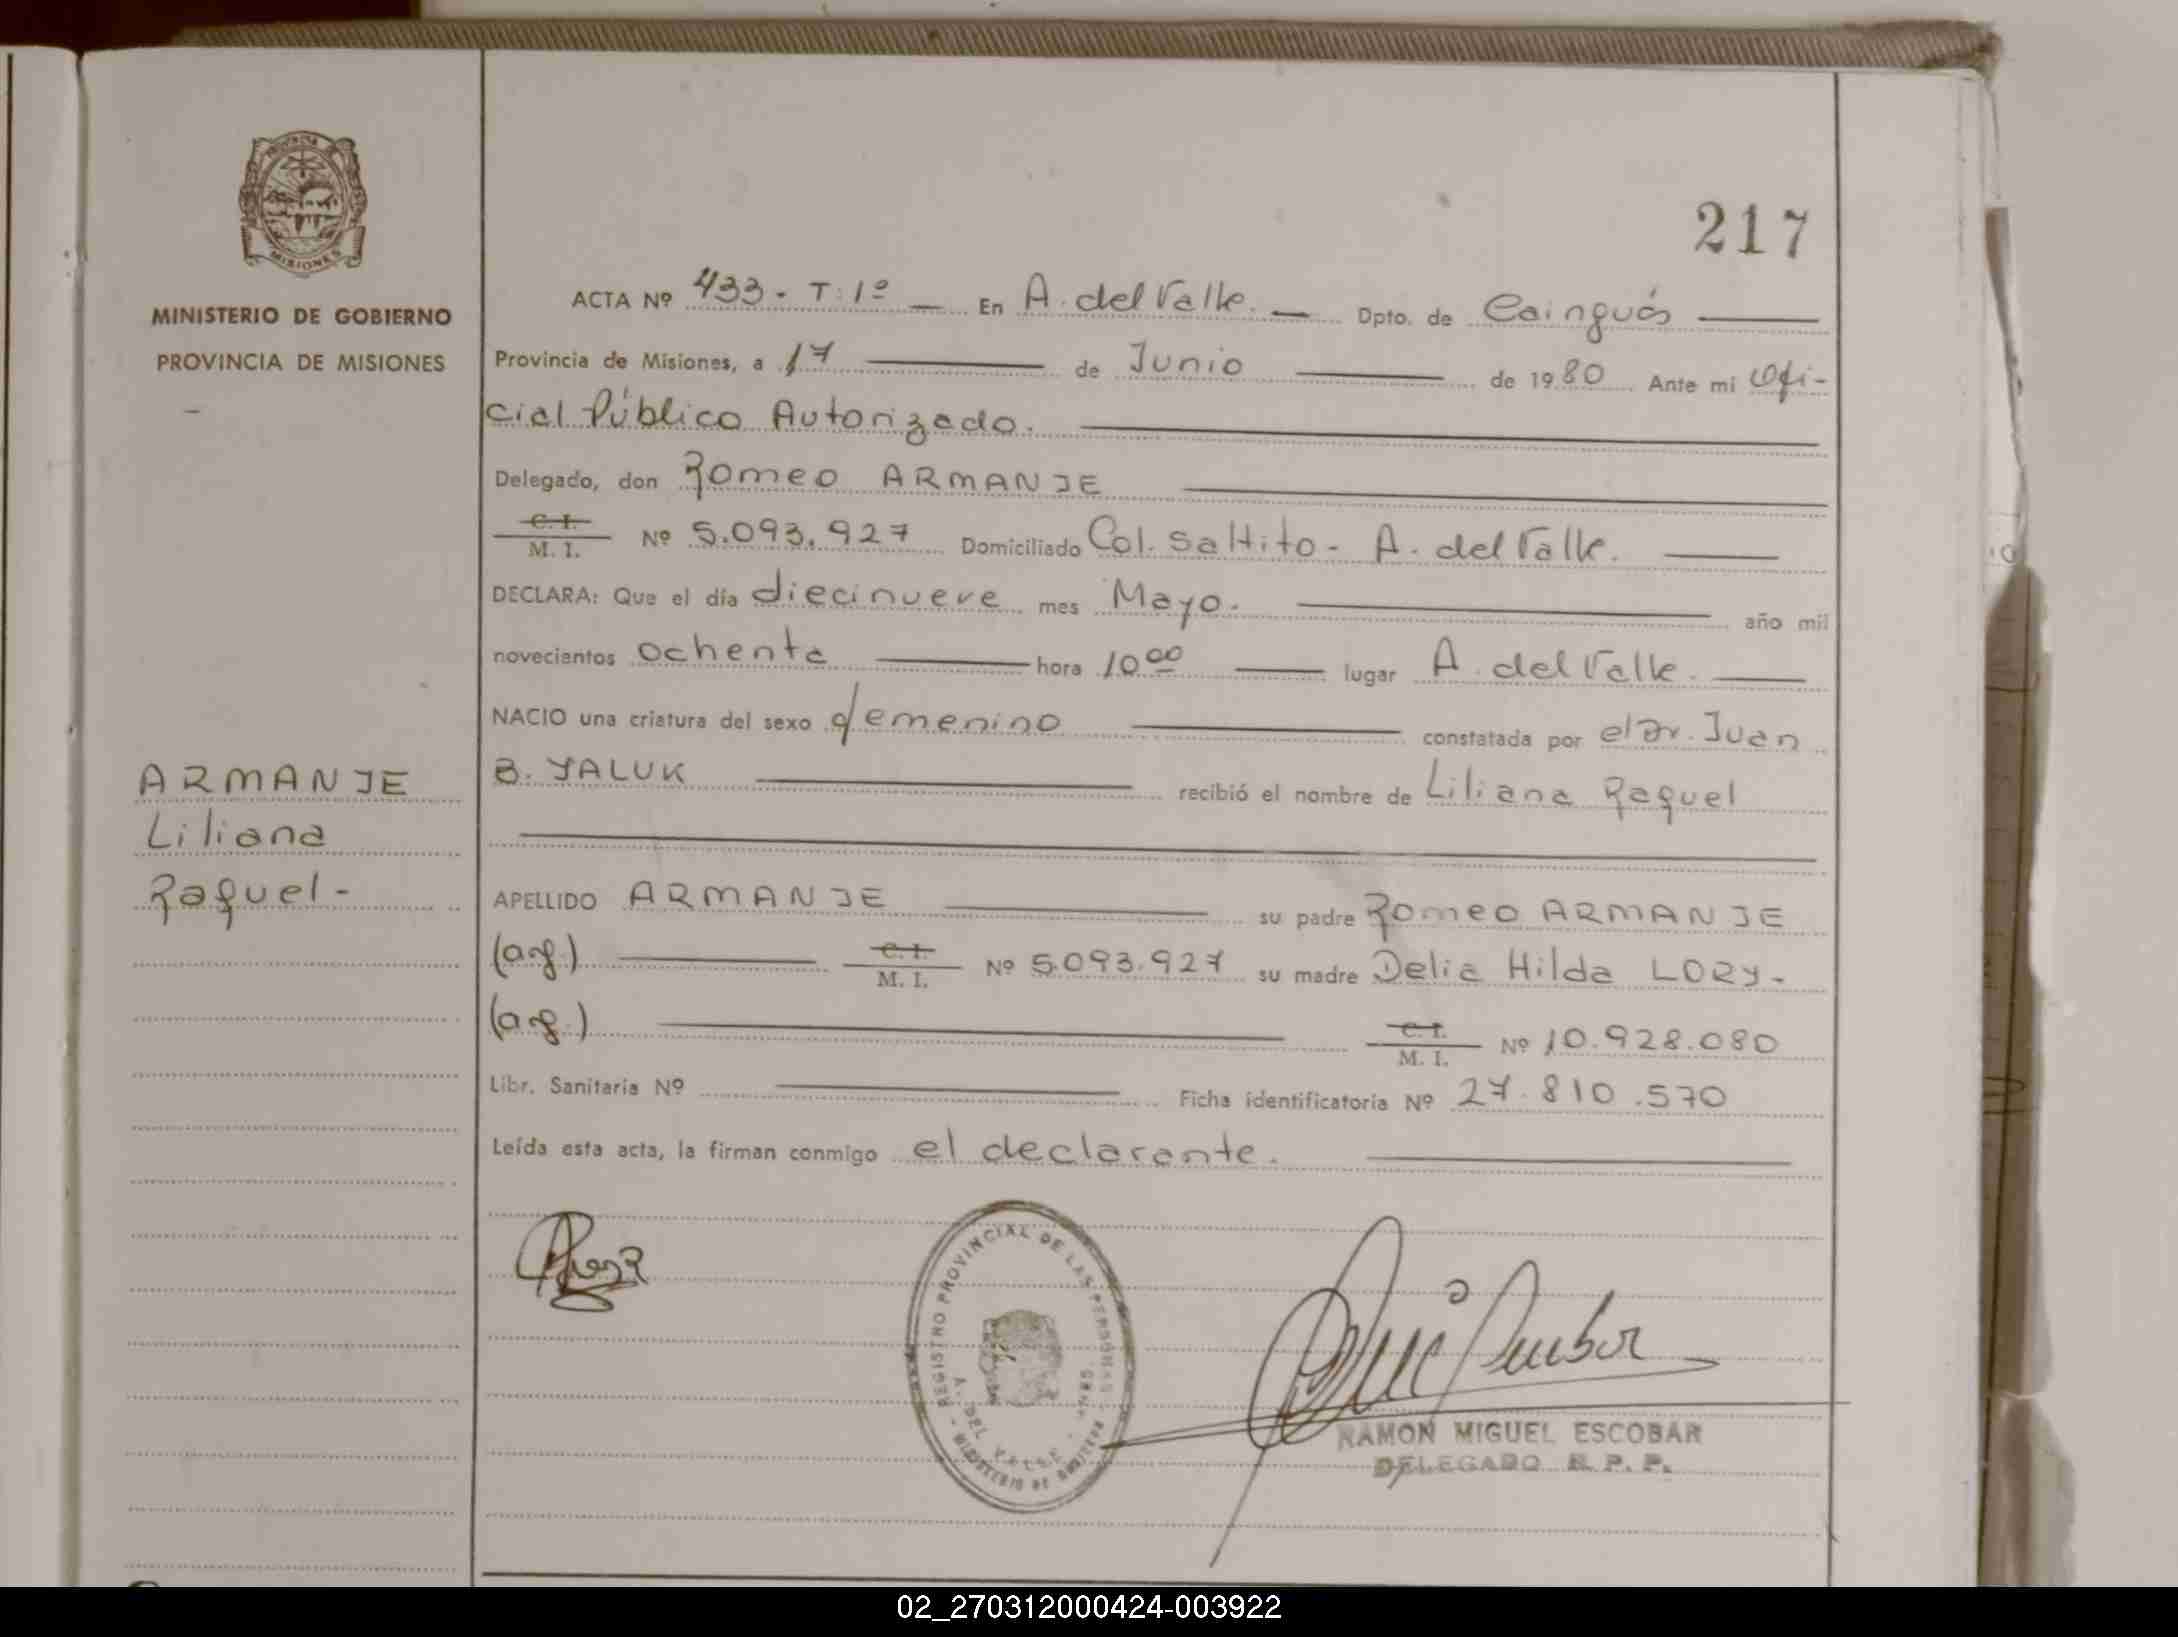 217
PROVINCIA DE
MISIONES
MINISTERIO DE GOBIERNO
PROVINCIA DE MISIONES
ACTA Nº 433 - T: 1º — En A. del Valle. — Dpto. de Cainguás
Provincia de Misiones, a 17 de Junio de 1980 Ante mi Ofi-
cial Público Autorizado.
Delegado, don Romeo ARMANJE
C. I. / M. I. Nº 5.093.927 Domiciliado Col. Saltito - A. del Valle.
DECLARA: Que el día diecinueve mes Mayo. año mil
novecientos ochenta hora 10 00 lugar A. del Valle.
NACIO una criatura del sexo femenino constatada por el Dr. Juan
B. YALUK recibió el nombre de Liliana Raquel
ARMANJE
Liliana
Raquel -
APELLIDO ARMANJE su padre Romeo ARMANJE
(arg.) C. I. / M. I. Nº 5.093.927 su madre Delia Hilda LORY -
(arg.) C. I. / M. I. Nº 10.928.080
Libr. Sanitaria Nº Ficha identificatoria Nº 27.810.570
Leída esta acta, la firman conmigo el declarante.
REGISTRO PROVINCIAL DE LAS PERSONAS
A. DEL VALLE
RAMON MIGUEL ESCOBAR
DELEGADO R. P. P.
02_270312000424-003922